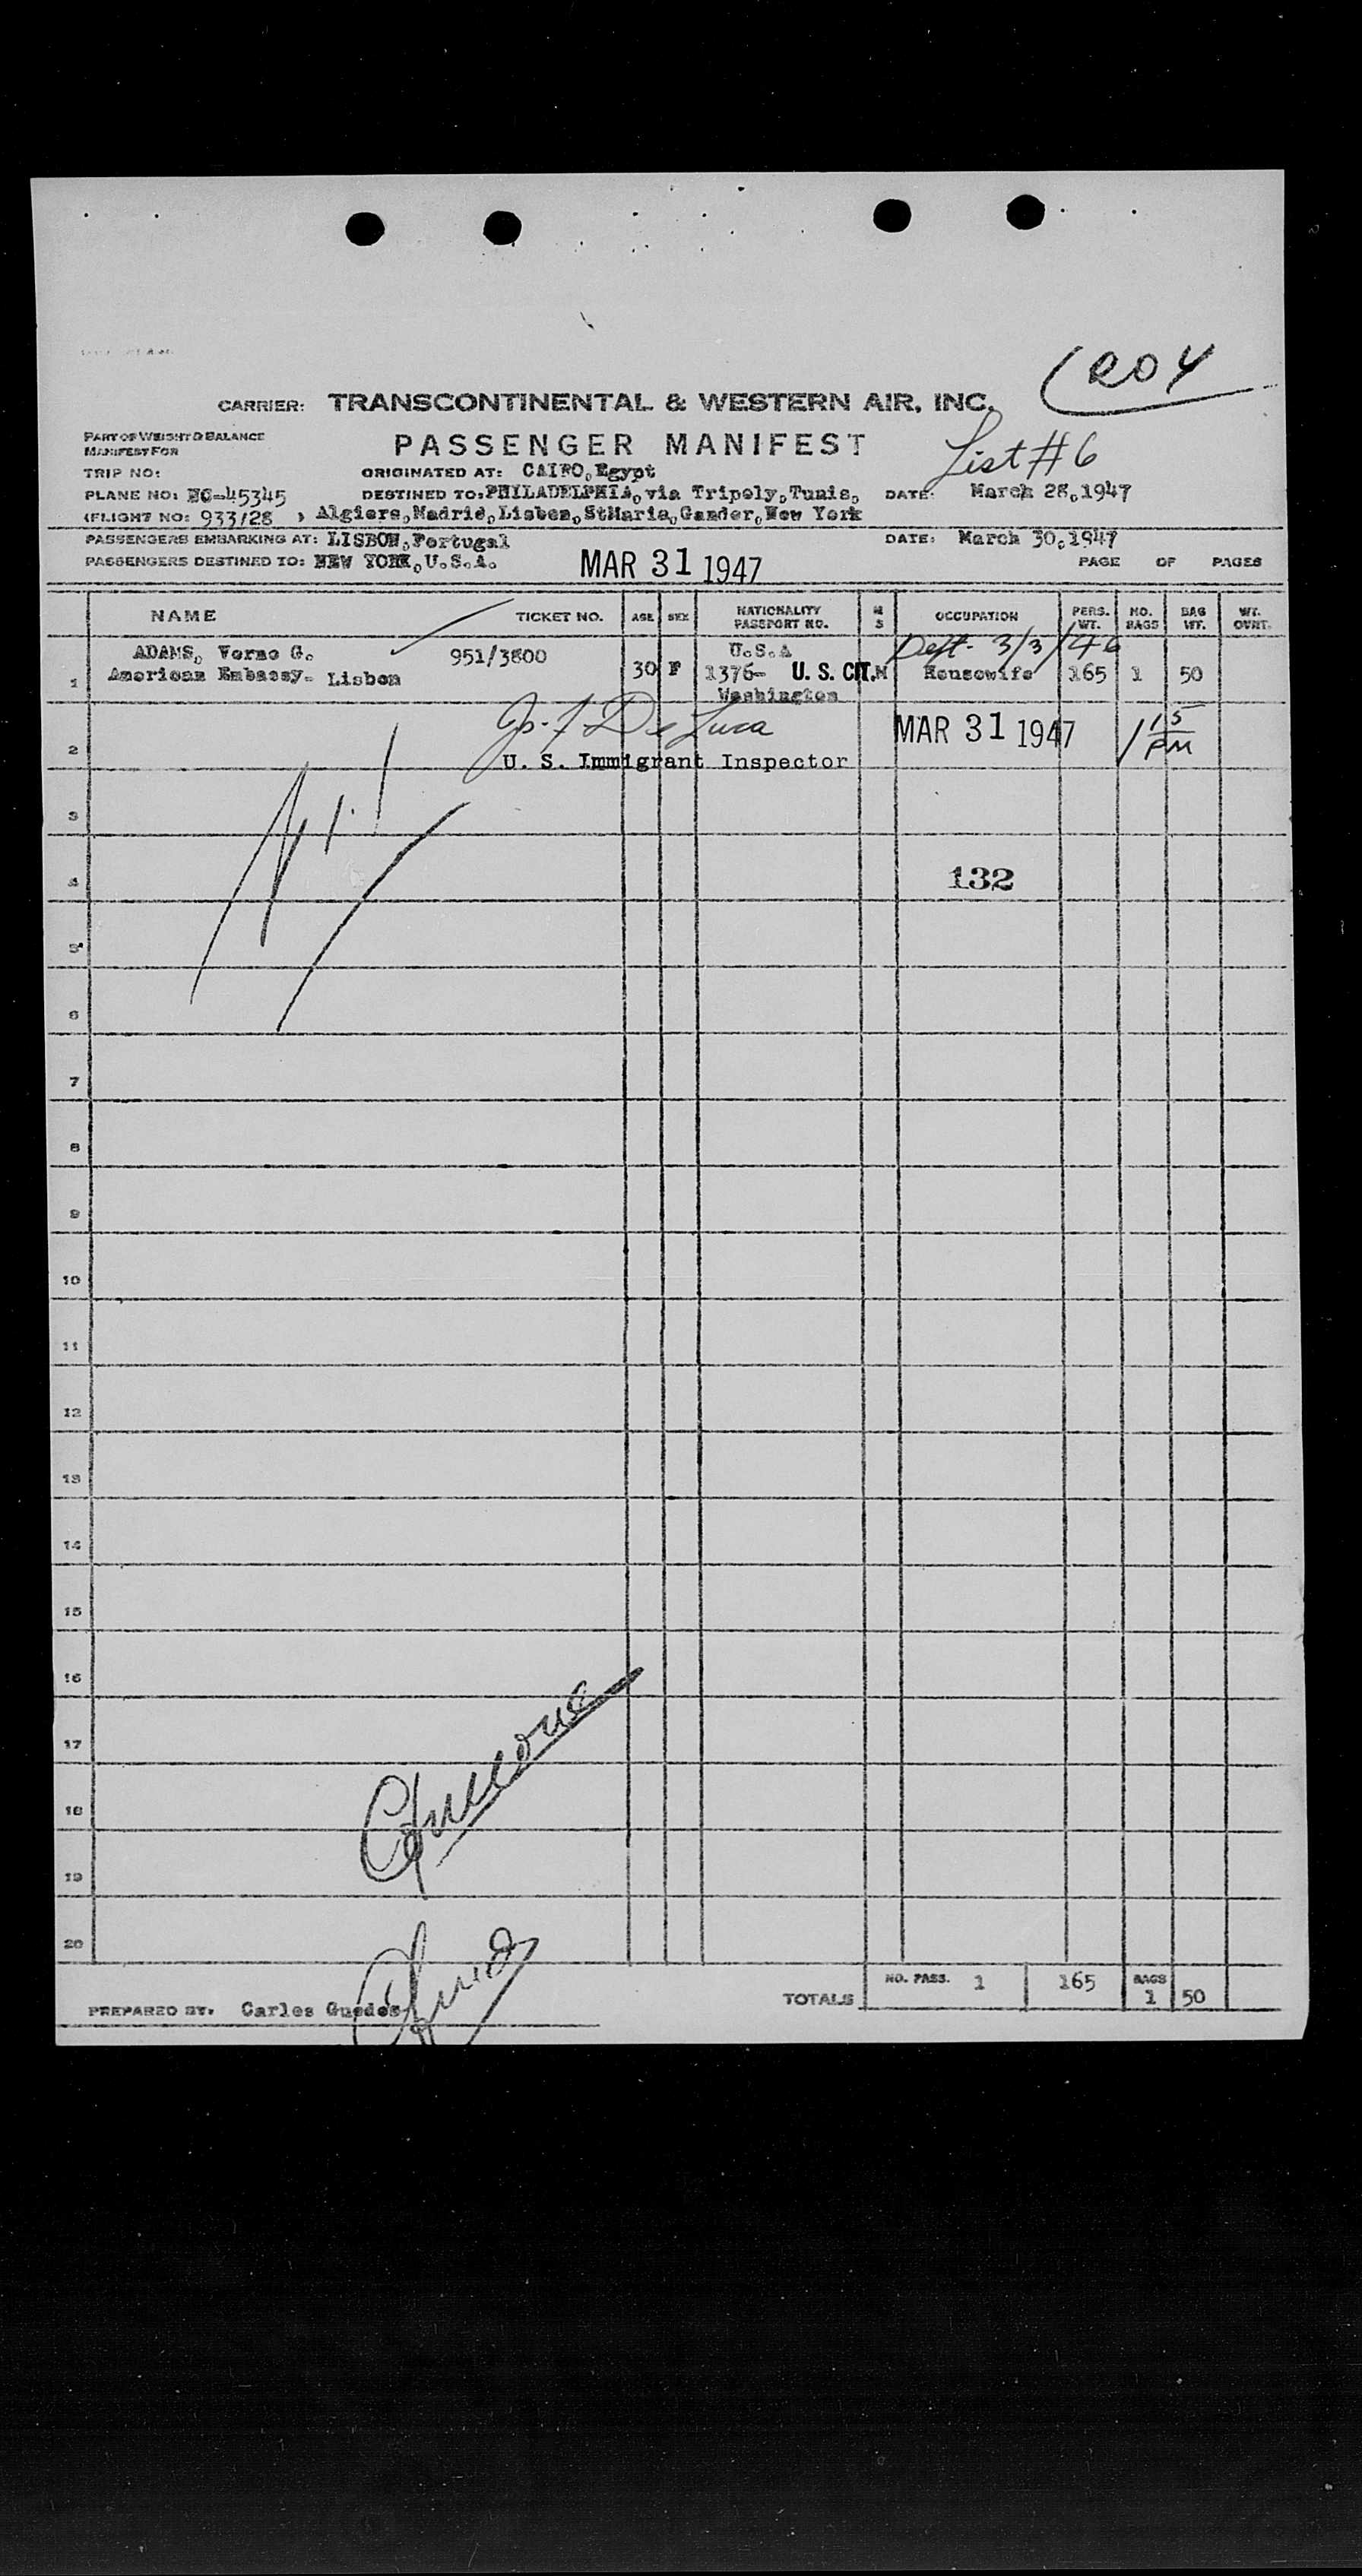 (204
CARRIER: TRANSCONTINENTAL & WESTERN AIR, INC.
PART OF WEIGHT & BALANCE
MANIFEST FOR
PASSENGER MANIFEST
List #6
TRIP NO:
ORIGINATED AT: CAIRO, Egypt
PLANE NO: NC-45345
DESTINED TO: PHILADELPHIA, via Tripoly, Tunis,
DATE: March 28, 1947
(FLIGHT NO: 933/28 ) Algiers, Madrid, Lisbon, StMaria, Gander, New York
PASSENGERS EMBARKING AT: LISBON, Portugal
DATE: March 30, 1947
PASSENGERS DESTINED TO: NEW YORK, U.S.A.
MAR 31 1947
PAGE OF PAGES
NAME TICKET NO. AGE SEX NATIONALITY PASSPORT NO. M S OCCUPATION PERS. WT. NO. BAGS BAG WT. WT. OVRT.
Dept. 3/3/46
ADAMS, Verne G. 951/3800 U.S.A
1 American Embassy- Lisbon 30 F 1376- U. S. CIT. M Housewife 165 1 50
Washington
Jo. F De Luca
MAR 31 1947 1 15 PM
2
U. S. Immigrant Inspector
3
4 132
5
6
7
8
9
10
11
12
13
14
15
16
17
18
19
20
NO. PASS. 1 165 BAGS
TOTALS 1 50
PREPARED BY: Carlos Guedes